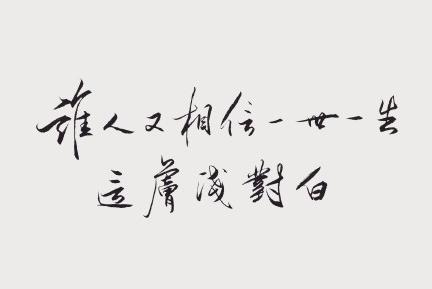 誰人又相信一世一生
這膚淺對白